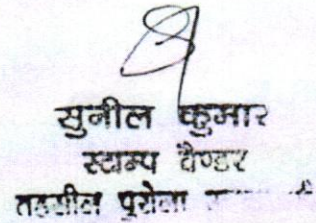 सुनील कुमार
स्टाम्प वैण्डर
तहसील पुरोला